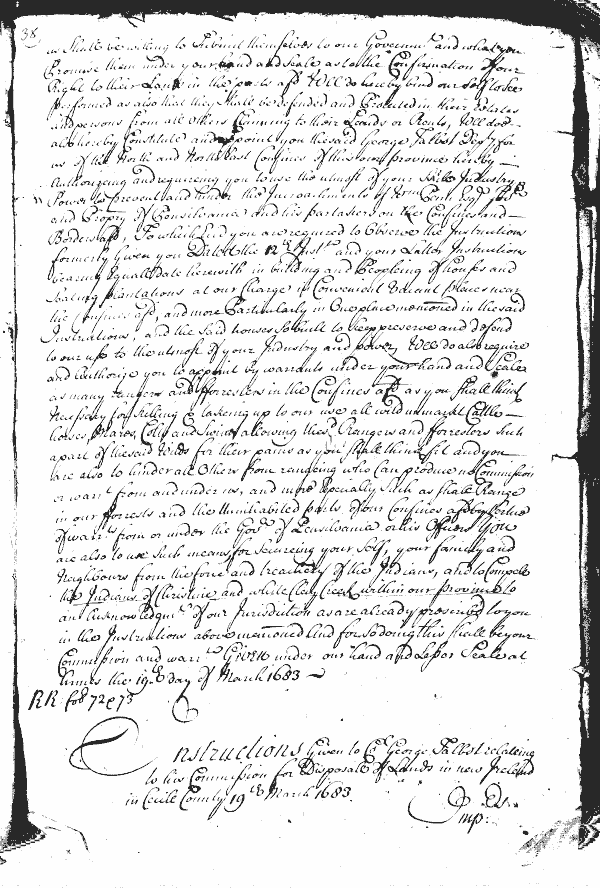 38
as shall be willing to submit themselves to our Governmt and what you
Promise them under your hand and Seale as to the Confirmation of your
Right to their Land in the parts afsd Wee do hereby bind our self to see
performed as also that they shall be defended and Protected in their Estates
and persons from all others Claiming to their Lands or Rents, Wee doe
also hereby Constitute and appoint you the said George Talbot Depty for
us of the North and North East Confines of this our province hereby
Authorizing and requiring you to use the utmost of your Skill Industry
Power to prevent and hinder the Incroachments of Wm Penn Esqr
and Propry of Pensilvania and his partakers on the Confines and
Borders afsd, To which End you are required to Observe the Instructions
formerly Given you Dated the 12th Instt and your Latter Instructions
bearing Equall date herewith in building and Peopleing of houses and
Seating plantations at our Charge in Convenient Vacant places near
the Confines afsd, and more Particularly in One place menconed in the said
Instructions, and the said houses So built to keep preserve and defend
to our use to the utmost of your Industry and power, Wee do also require
and Authorize you to appoint by warrants under your hand and Seale
as many rangers and fforresters in the Confines afsd as you shall think
necessary for killing & taking up to our use all wild unmarkt Cattle
horses Mares, Colts and Swine allowing the sd Rangers and forrestors Such
a part of the said Wilds for their pains as you shall think fit and you
are also to hinder all Others from rangeing who Can produce no Commission
or warrt from and under us, and more Especially Such as shall Range
in our fforrests and the Uninhabited parts of our Confines afsd by virtue
of warrts from or under the Govr of Pensilvania or his Officers You
are also to use Such means for Secureing your Self, your family and
Neighbours from the force and treachery of the Indians, and to Compell
the Indians of Christine and white Clay Creek within our Province to
an Acknowledgmt of our Jurisdiction as are already prescribed to you
in the Instructions above menconed And for so doing this shall be your
Commission and warrt Given under our hand and Lesser Seale at
Armes the 19th day of March 1683
RR fos 72 & 73
Instructions Given to Col George Talbot relateing
to his Commission for Disposall of Lands in new Ireland
in Cecile County 19th March 1683.